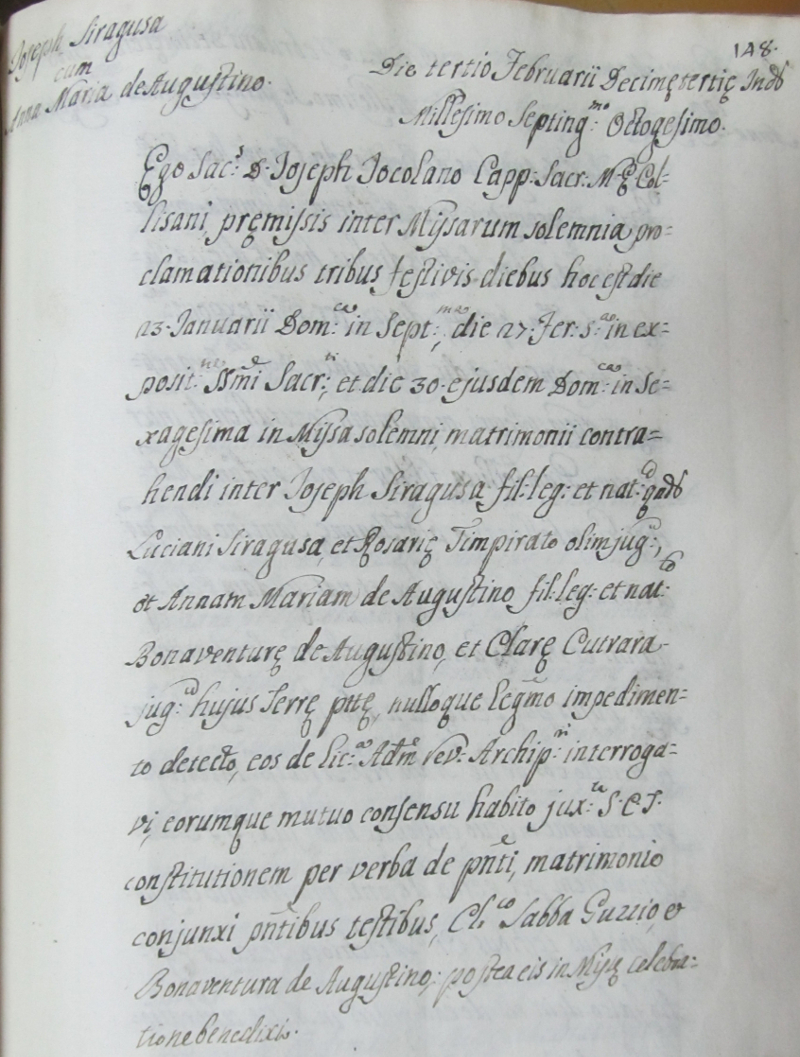 Joseph Siragusa
cum
Anna Maria de Augustino.
148.
Die tertio Februarii Decimę tertię Ind.
Millesimo Septing:mo Octogesimo.
Ego Sac:s D. Joseph Jocolano Capp: Sacr: M: E: Col-
lisani, pręmissis inter Missarum solemnia, pro=
clamationibus tribus festivis diebus hoc est die
23. Januarii Dom:ca in Sept:ma, die 27. Fer. 5.a in ex=
posit:ne SSmi Sacr:ti, et die 30. ejusdem Dom:ca in Se=
xagesima in Missa solemni, matrimonii contra=
hendi inter Joseph Siragusa fil: leg: et nat:
Luciani Siragusa, et Rosarię Timpirato olim jug:,
et Annam Mariam de Augustino fil: leg: et nat:
Bonaventurę de Augustino, et Clarę Cutrara
jug: hujus Terrę pńtę, nulloque Legmo impedimen=
to detecto, eos de Lic:a Adm: rev: Archip:ri interroga=
vi, eorumque mutuo consensu habito jux:ta S. C. T.
constitutionem per verba de pńti, matrimonio
conjunxi pńtibus testibus, Cl:co Sabba Guzzio, et
Bonaventura de Augustino; postea eis in Missę celebra=
tione benedixi.